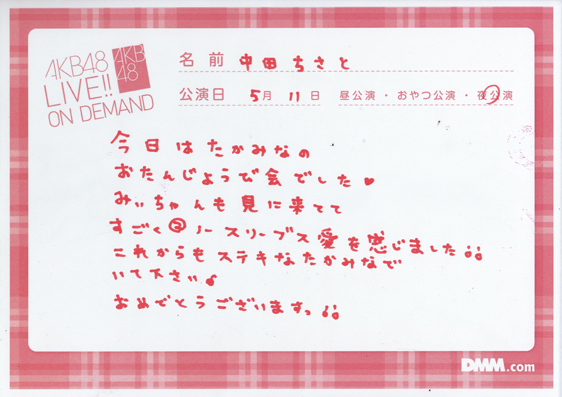 AKB48
LIVE!!
ON DEMAND
AKB
48
名前 中田ちさと
公演日 5月 11日 昼公演・おやつ公演・夜公演
今日はたかみなの
おたんじょうび会でした♥
みぃちゃんも見に来てて
すごく②ノースリーブス愛を感じました!!
これからもステキなたかみなで
いて下さい♪
おめでとうございますっ!!
DMM.com